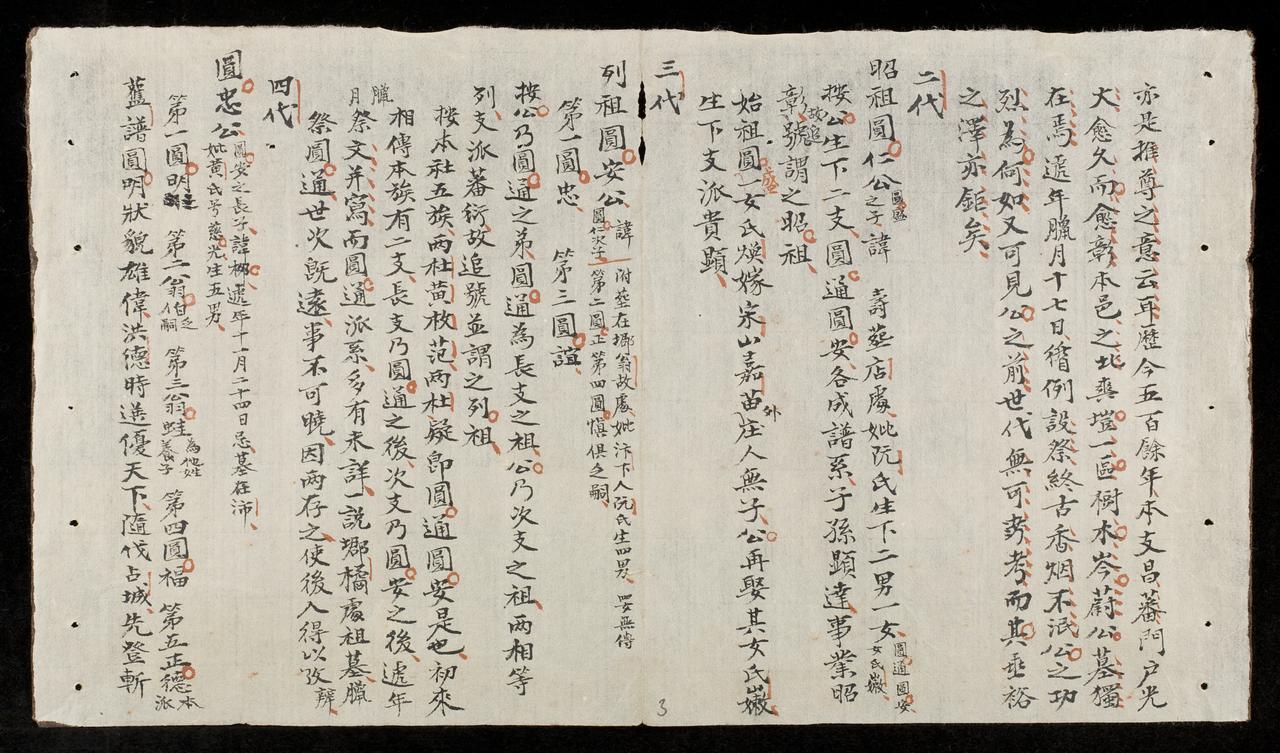 亦是推尊之意云耳歷今五百餘年本支昌蕃門户光
大愈久而愈彰本邑之北爽塏一區樹木岑蔚公墓獨
在焉遞年臘月十七日循例設祭終古香烟不泯公之功
烈為何如又可見公之前世代無可考而其垂裕
之澤亦鉅矣
二代
昭祖圓仁公之子諱 壽塟店處妣阮氏生下二男一女圓通圓安女氏嫩
按公生下二支圓通圓安各成譜系子孫顯達事業昭
彰故追號謂之昭祖
始祖圓盛一女氏煥嫁宋山嘉苗外庄人無子公再娶其女氏嫩
生下支派貴顯
三代
列祖圓安公圓仁次子諱 附塟在塸翁故處妣汴下人阮氏生四男
第一圓忠 第二圓正 第三圓誼 第四圓慎俱之嗣
按公乃圓通之弟圓通為長支之祖公乃次支之祖兩相等
列支派蕃衍故追號並謂之列祖
按本社五族兩杜黄枚范兩杜疑即圓通圓安是也初來
相傳本族有二支長支乃圓通之後次支乃圓安之後遞年
臘月祭文并寫而圓通派系多有未詳一説塸橘處祖墓臘
祭圓通世次既遠事不可曉因兩存之使後人得以攷辨
四代
圓忠公圓安之長子諱 遞年十一月二十四日忌墓在沛
妣黄氏号慈光生五男
第一圓明 第二翁伯之嗣 第三翁蛙為他姓養子 第四圓福 第五正德本派
藍譜圓明狀貌雄偉洪德時選優天下隨伐占城先登斬
3